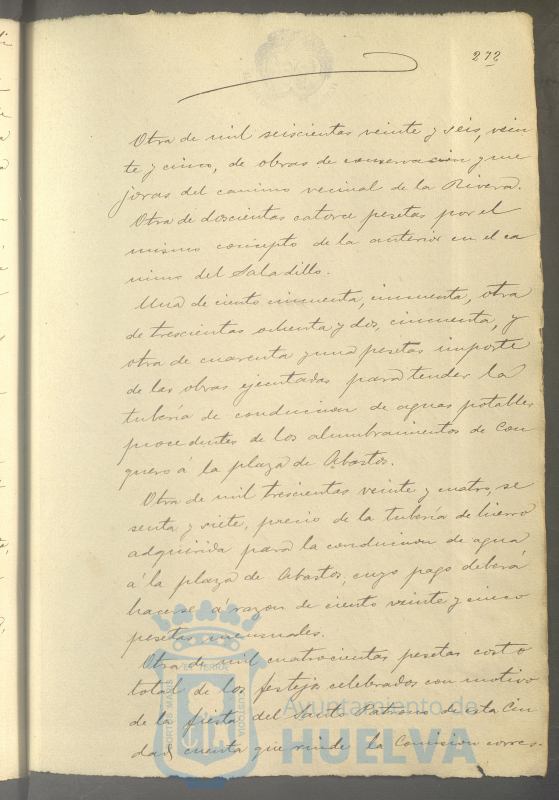 272
Otra de mil seiscientas veinte y seis, vein
te y cinco, de obras de conservacion y me
joras del camino vecinal de la Rivera.
Otra de doscientas catorce pesetas por el
mismo concepto de la anterior en el ca
mino del Saladillo.
Una de ciento cincuenta, cincuenta, otra
de trescientas ochenta y dos, cincuenta, y
otra de cuarenta y una pesetas importe
de las obras ejecutadas para tender la
tubería de conduccion de aguas potables
procedentes de los alumbramientos de Con
quero á la plaza de Abastos.
Otra de mil trescientas veinte y cuatro, se
senta y siete, precio de la tubería de hierro
adquirida para la conduccion de agua
á la plaza de Abastos, cuyo pago deberá
hacerse á razon de ciento veinte y cinco
pesetas mensuales.
Otra de mil cuatrocientas pesetas costo
total de los festejos celebrados con motivo
de la fiesta del Santo Patrono de esta Ciu
dad, cuenta que rinde la Comision corres-
Ayuntamiento de
HUELVA
PORTUS MARIS ET TERRAE CUSTODIA